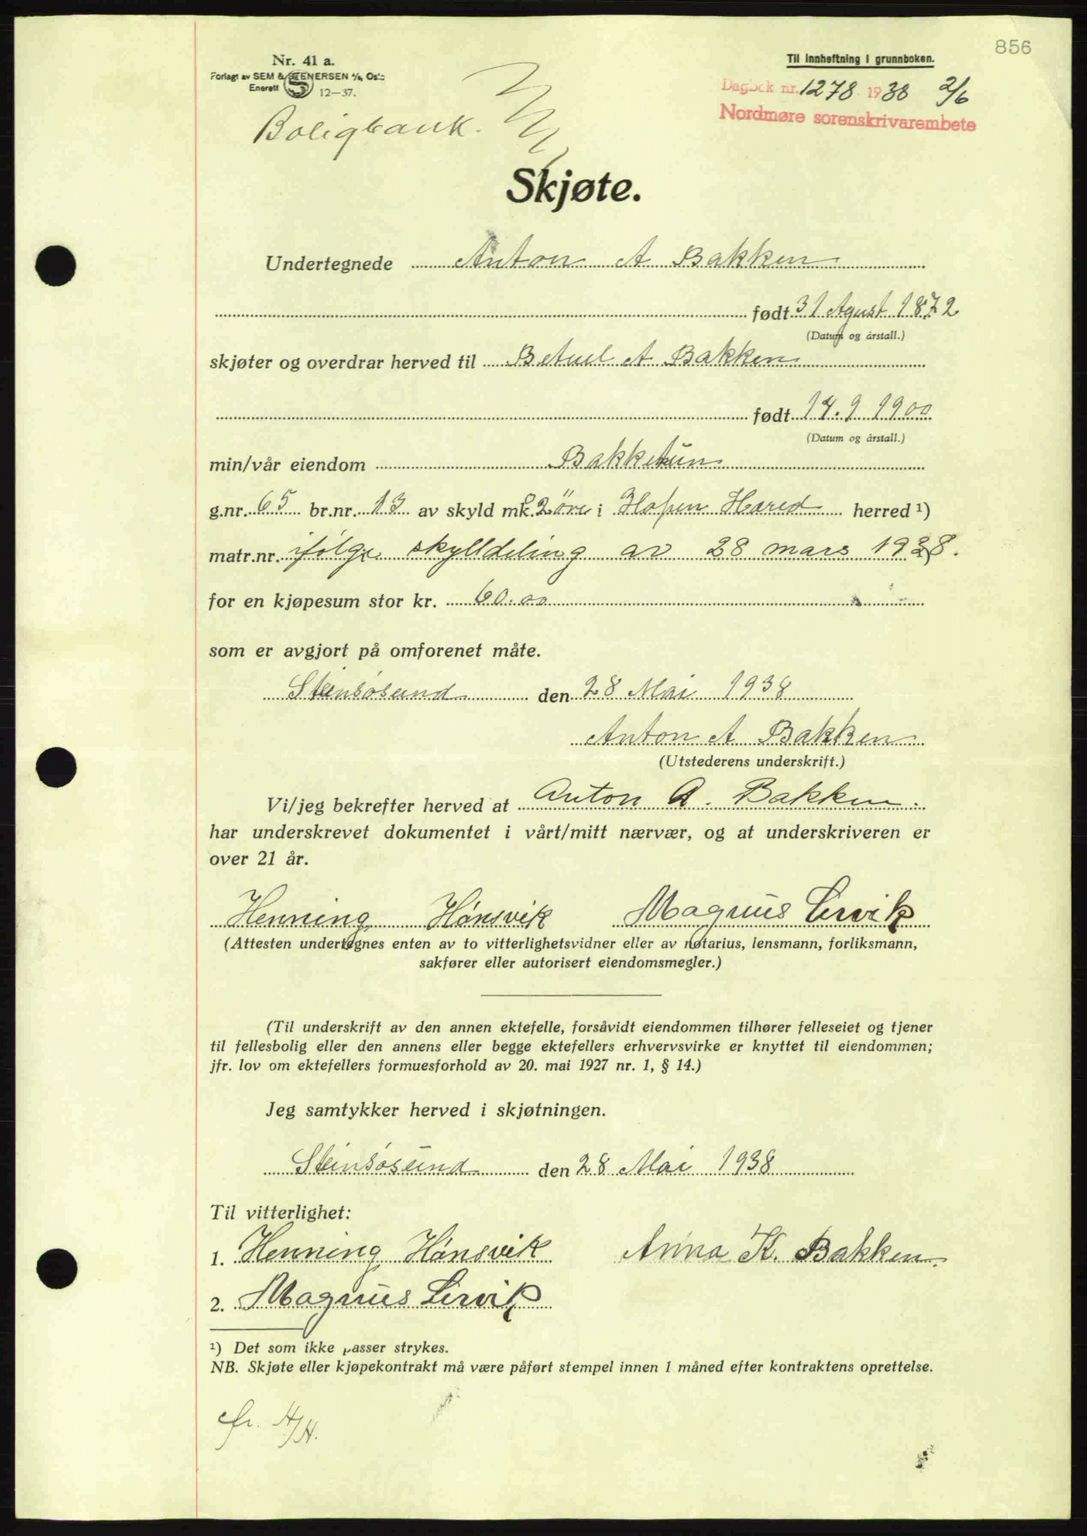 856
Nr. 41 a.
Forlagt av SEM & STENERSEN A/S, Oslo
Enerett S 12—37.
Til innheftning i grunnboken.
Dagbok nr. 1278 1938 2/6
Nordmøre sorenskrivarembete
Boligbank.
Skjøte.
Undertegnede Anton A Bakken
født 31 Agust 1872
(Datum og årstall.)
skjøter og overdrar herved til Betuel A Bakken
født 14.9 1900
(Datum og årstall.)
min/vår eiendom Bakketun
g.nr. 65 br.nr. 13 av skyld mk. 2 öre i Hopen Hered herred ¹)
matr.nr. ifölge skylldeling av 28 mars 1938.
for en kjøpesum stor kr. 60.00
som er avgjort på omforenet måte.
Steinsösund den 28 Mai 1938
Anton A Bakken
(Utstederens underskrift.)
Vi/jeg bekrefter herved at Anton A. Bakken.
har underskrevet dokumentet i vårt/mitt nærvær, og at underskriveren er
over 21 år.
Henning Hönsvik Magnus Lervik
(Attesten undertegnes enten av to vitterlighetsvidner eller av notarius, lensmann, forliksmann,
sakfører eller autorisert eiendomsmegler.)
(Til underskrift av den annen ektefelle, forsåvidt eiendommen tilhører felleseiet og tjener
til fellesbolig eller den annens eller begge ektefellers erhvervsvirke er knyttet til eiendommen;
jfr. lov om ektefellers formuesforhold av 20. mai 1927 nr. 1, § 14.)
Jeg samtykker herved i skjøtningen.
Steinsösund den 28 Mai 1938
Til vitterlighet:
1. Henning Hönsvik Anna K. Bakken.
2. Magnus Lervik
¹) Det som ikke passer strykes.
NB. Skjøte eller kjøpekontrakt må være påført stempel innen 1 måned efter kontraktens oprettelse.